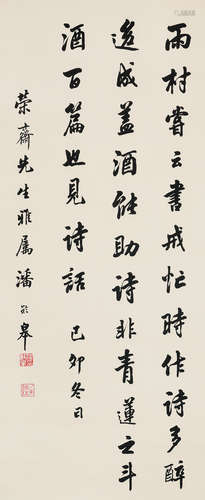 雨村嘗云書戒忙時作詩多醉
後成蓋酒能助詩非青蓮之斗
酒百篇也見詩話 己卯冬日
荣齋先生雅属 潘於皋